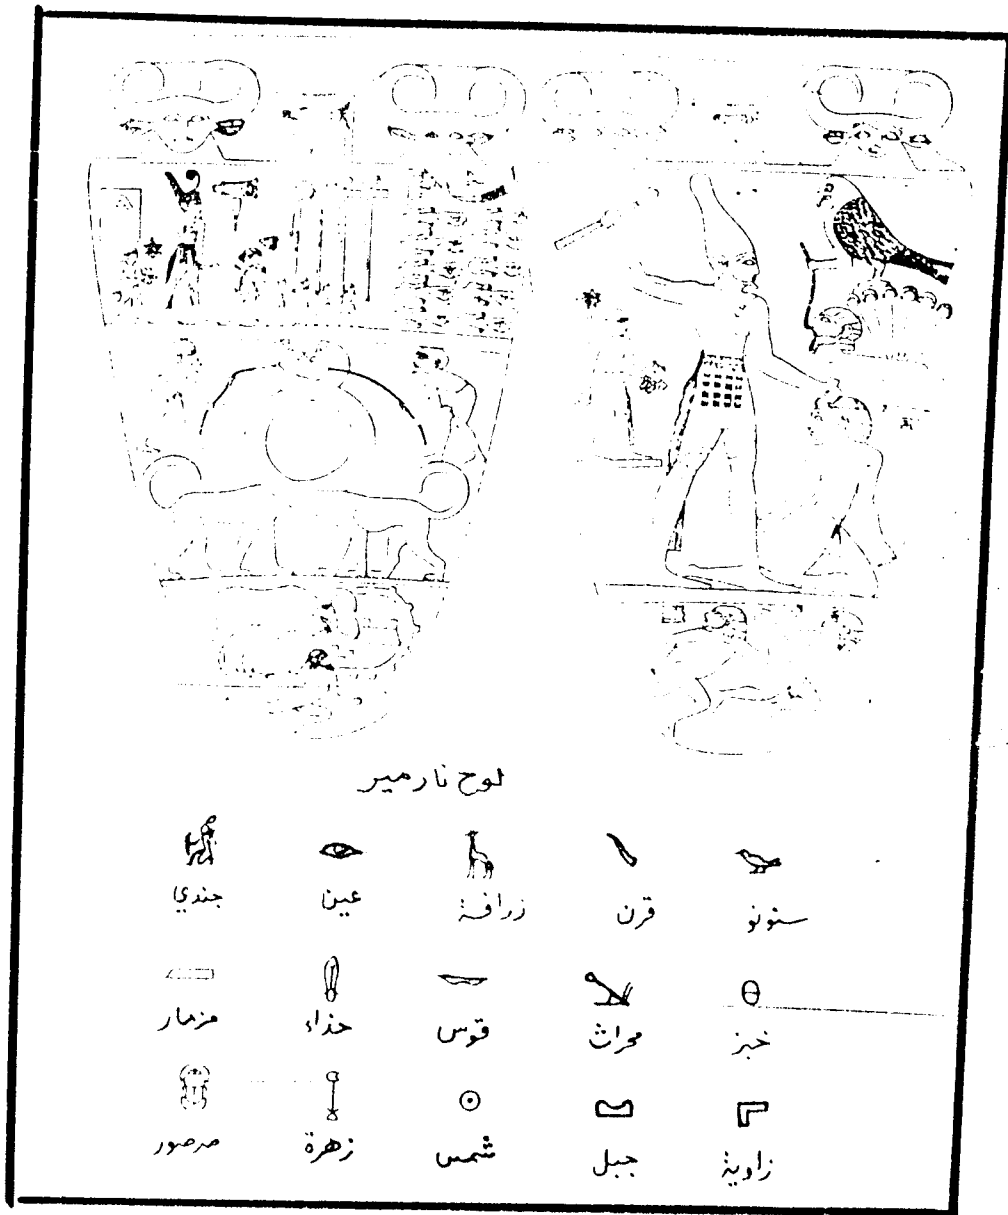 لوح نارمير
سنونو قرن زرافة عين جندي
خبز محراث قوس حذاء مزمار
زاوية جبل شمس زهرة صرصور